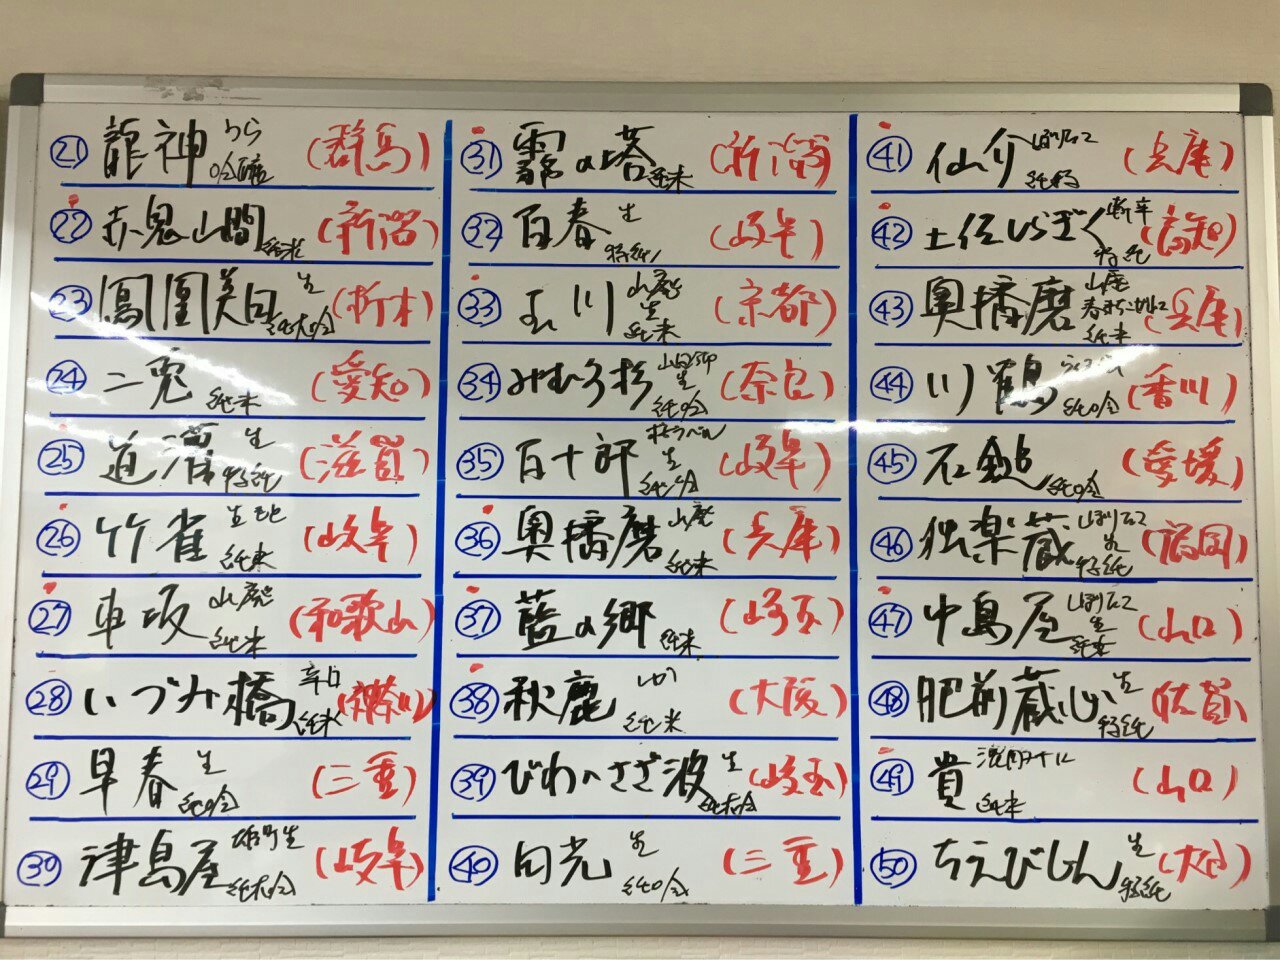 ㉑ 龍神 (群馬)
㉒ 赤鬼山間 純米 (新潟)
㉓ 鳳凰美田 生 純大吟 (栃木)
㉔ 二兎 純米 (愛知)
㉕ 道灌 生 特純 (滋賀)
㉖ 竹雀 生もと 純米 (岐阜)
㉗ 車坂 山廃 純米 (和歌山)
㉘ いづみ橋 辛口 純米 (神奈川)
㉙ 早春 生 純吟 (三重)
㉚ 津島屋 雄町生 純大吟 (岐阜)
㉛ の塔 純米 (新潟)
㉜ 百春 生 特純 (岐阜)
㉝ 玉川 山廃 生 純米 (京都)
㉞ みむろ杉 生 純吟 (奈良)
㉟ 百十郎 生 純吟 (岐阜)
㊱ 奥播磨 山廃 純米 (兵庫)
㊲ 藍の郷 純米 (埼玉)
㊳ 秋鹿 純米 (大阪)
㊴ びわのさざ波 生 純大吟 (埼玉)
㊵ 生 純吟 (三重)
㊶ 仙介 (兵庫)
㊷ 土佐しらぎく 斬辛 特純 (高知)
㊸ 奥播磨 山廃 純米 (兵庫)
㊹ 川鶴 純吟 (香川)
㊺ 石鎚 純吟 (愛媛)
㊻ 独楽蔵 特純 (福岡)
㊼ 中島屋 生 純米 (山口)
㊽ 肥前蔵心 生 特純 (佐賀)
㊾ 貴 純米 (山口)
㊿ ちえびじん 生 特純 (大分)